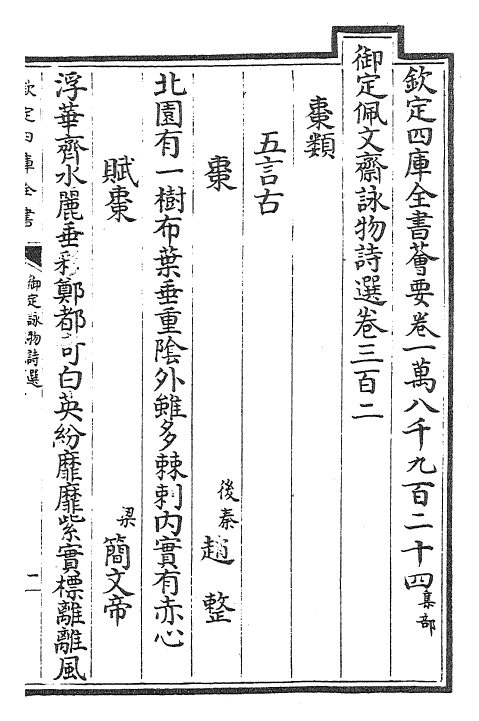 欽定四庫全書薈要卷一萬八千九百二十四集部
御定佩文齋詠物詩選卷三百二
棗類
五言古
棗 後秦 趙整
北園有一樹布葉垂重陰外雖多棘刺内實有赤心
賦棗 梁 簡文帝
浮華齊水麗垂彩鄭都可白英紛靡靡紫實標離離風
欽定四庫全書 御定詠物詩選 一